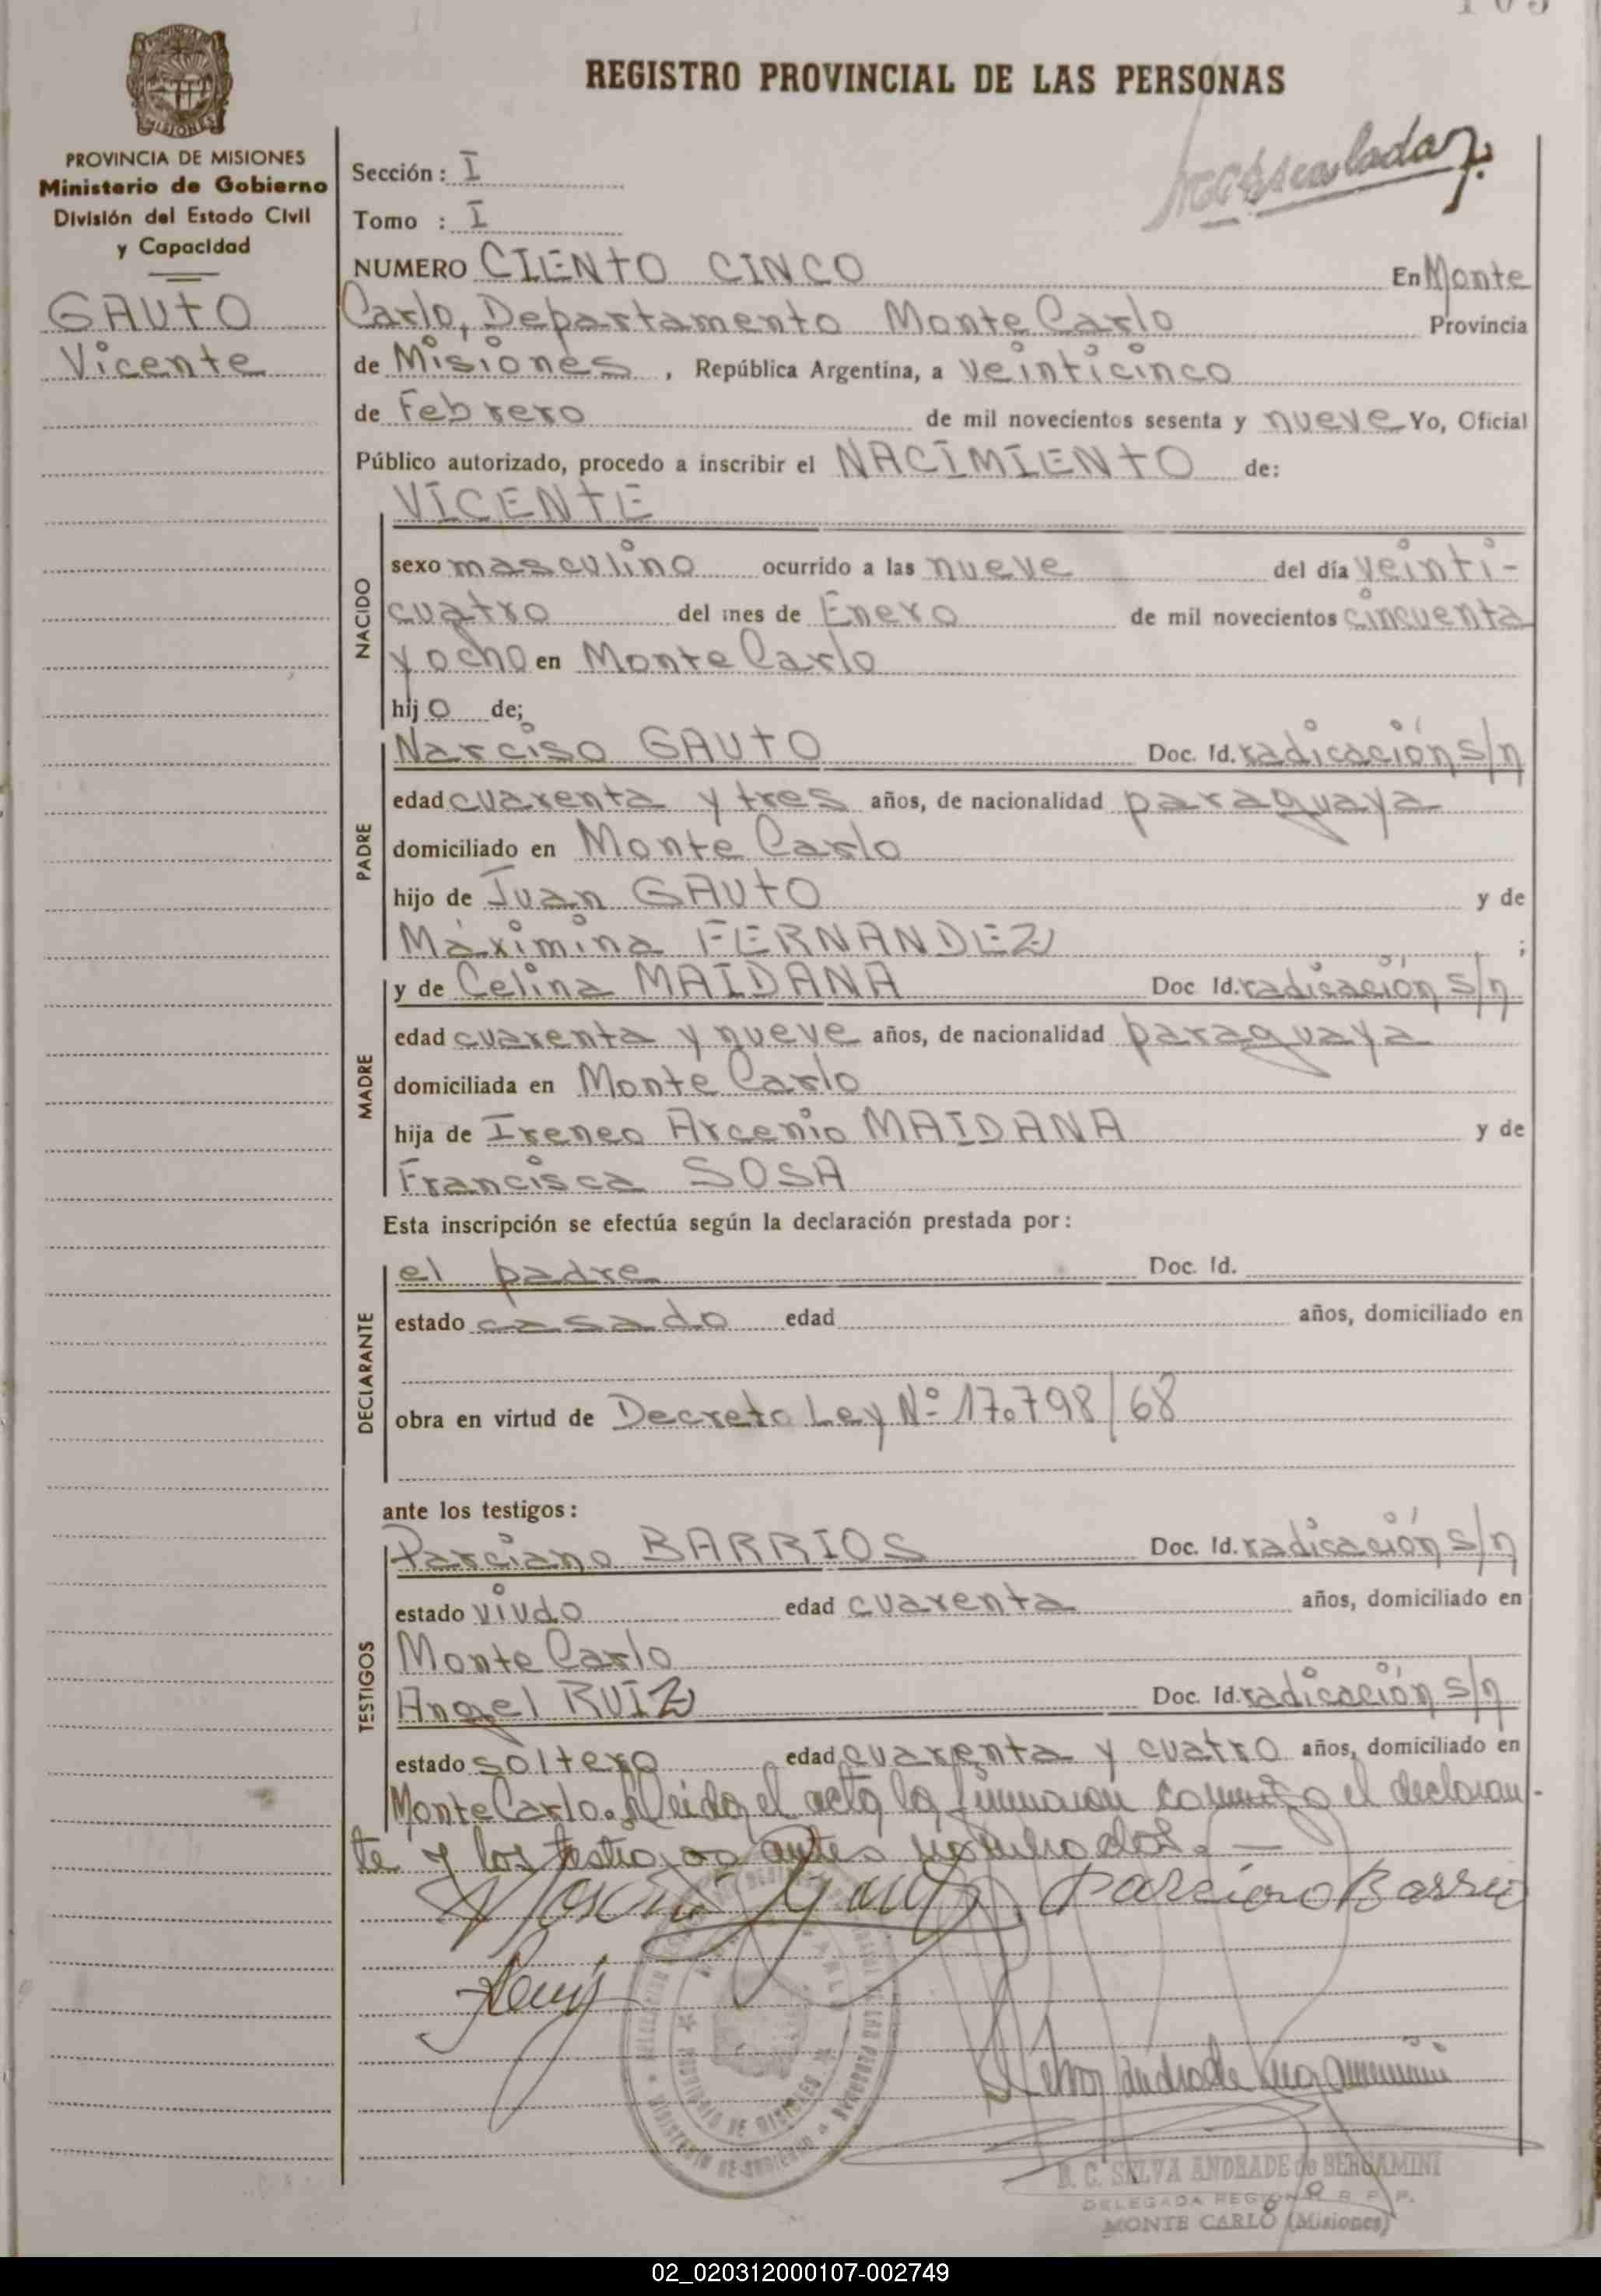 105
REGISTRO PROVINCIAL DE LAS PERSONAS
MISIONES
PROVINCIA DE MISIONES
Ministerio de Gobierno
División del Estado Civil
y Capacidad
GAUTO
Vicente
Sección: I
Tomo : I
NUMERO CIENTO CINCO En Monte
Carlo, Departamento Monte Carlo Provincia
de Misiones, República Argentina, a veinticinco
de Febrero de mil novecientos sesenta y nueve Yo, Oficial
Público autorizado, procedo a inscribir el NACIMIENTO de:
NACIDO
VICENTE
sexo masculino ocurrido a las nueve del día veinti-
cuatro del mes de Enero de mil novecientos cincuenta
y ocho en Monte Carlo
hijo de;
PADRE
Narciso GAUTO Doc. Id. radicación s/n
edad cuarenta y tres años, de nacionalidad paraguaya
domiciliado en Monte Carlo
hijo de Juan GAUTO y de
Máximina FERNANDEZ ;
MADRE
y de Celina MAIDANA Doc Id. radicación s/n
edad cuarenta y nueve años, de nacionalidad paraguaya
domiciliada en Monte Carlo
hija de Ireneo Arcenio MAIDANA y de
Francisca SOSA
Esta inscripción se efectúa según la declaración prestada por:
DECLARANTE
el padre Doc. Id.
estado casado edad años, domiciliado en
obra en virtud de Decreto Ley Nº 17.798/68
ante los testigos:
TESTIGOS
Parciano BARRIOS Doc. Id. radicación s/n
estado viudo edad cuarenta años, domiciliado en
Monte Carlo
Angel RUIZ Doc. Id. radicación s/n
estado soltero edad cuarenta y cuatro años, domiciliado en
Monte Carlo. Leida el acta la firmaron conmigo el declaran-
te y los testigos antes nombrados.
Parciano Barrios
B. C. SELVA ANDRADE de BERGAMINI
DELEGADA REGIONAL R. P. P.
MONTE CARLO (Misiones)
02_020312000107-002749